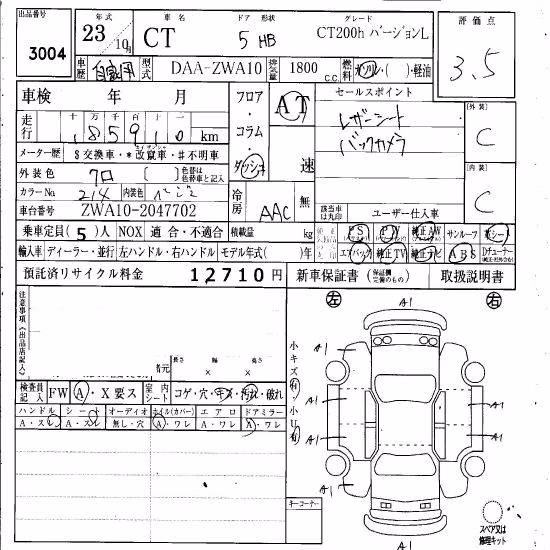 出品番号
3004
年式 車名 ドア 形状 グレード 評価点
23 10月 CT 5 HB CT200h バージョンL 3.5
車歴 自家用 型式 DAA-ZWA10 排気量 1800 c.c. 燃料 ガソリン・( )・軽油
車検 年 月 フロア・コラム・ダッシュ AT 速 セールスポイント 外装 C
走行 十万 千 百 十 一
185910 km
レザーシート
バックカメラ
メーター歴 $交換車・*改竄車・#不明車
外装色 クロ [ ] 色替は色替車と記入
内装 C
カラーNo 214 内装色 ベージュ 冷房 AAC 無 該当車は丸印 ユーザー仕入車
車台番号 ZWA10-2047702
乗車定員(5)人 NOX 適合・不適合 積載量 kg 純正 PS PW 純正AW サンルーフ 革シート
輸入車 ディーラー・並行 左ハンドル・右ハンドル モデル年式( )年 エアバック 純正TV 純正ナビ ABS Dチューナー
預託済リサイクル料金 12710円 新車保証書 (保証欄完備のもの) 取扱説明書
注意事項《出品店記入》
左 A1 右
小キズ有・小U有
諸元 長さ 幅 高さ
× ×
検査員記入 FW A・X要ス 室内シート コゲ・穴・キズ・汚れ・破れ
ハンドル シート オーディオ ホイル(カバー) エアロ ドアミラー
A・スレ A・スレ 無し・穴 A・ワレ A・ワレ A・ワレ
A1
A1
A1
A1
A1
A1
A1
A1
キーコーナー
スペア又は修理キット